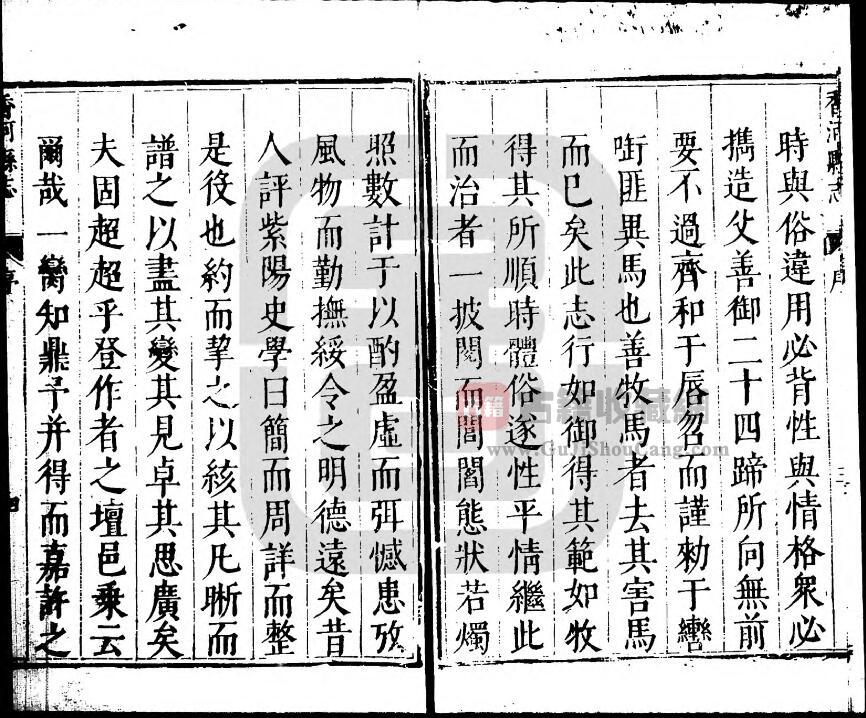 香河縣志
序
三
時與俗違用必背性與情格衆必
攜造父善御二十四蹄所向無前
要不過齊和于唇忽而謹勑于轡
啣匪異馬也善牧馬者去其害馬
而已矣此志行如御得其範如牧
得其所順時體俗遂性平情繼此
而治者一披閱而閭閻態狀若燭
照數計于以酌盈虛而弭憾患攷
風物而勤撫綏令之明德遠矣昔
人評紫陽史學曰簡而周詳而整
是役也約而挈之以絃其凡晰而
譜之以盡其變其見卓其思廣矣
夫固超超乎登作者之壇邑乗云
爾哉一臠知鼎予并得而嘉許之
香河縣志
序
四
古籍收藏網
www.GuJiShouCang.com